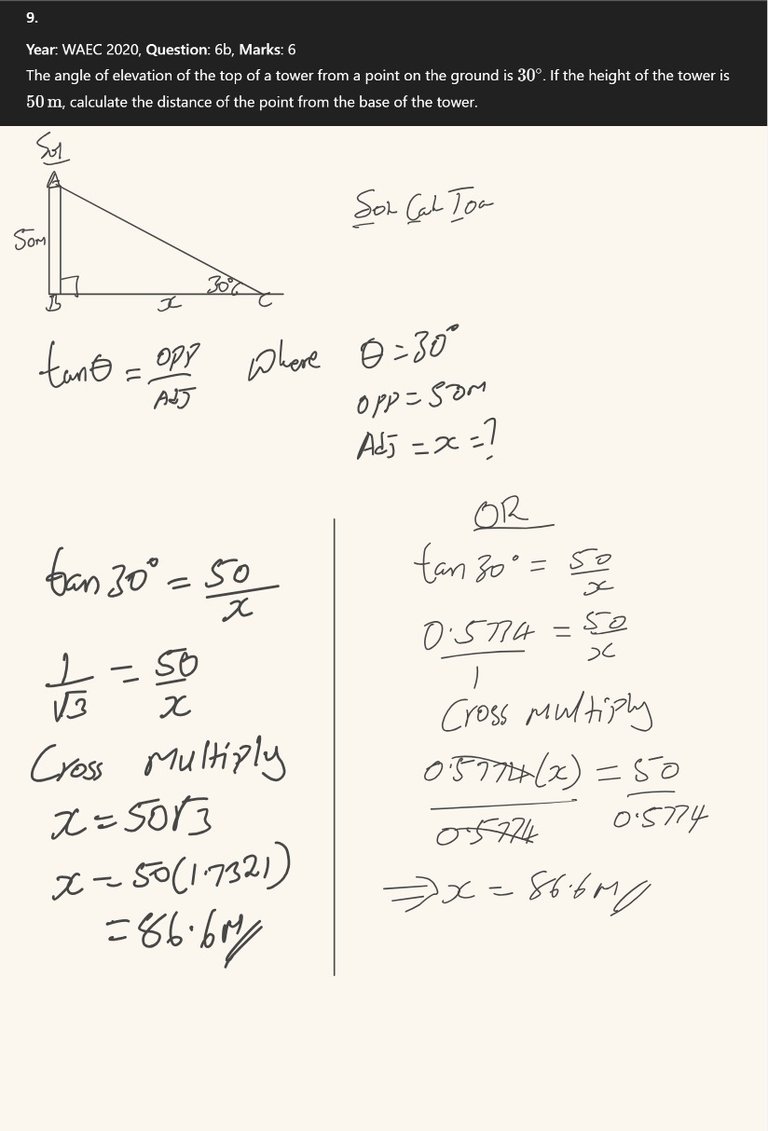 9.
Year: WAEC 2020, Question: 6b, Marks: 6
The angle of elevation of the top of a tower from a point on the ground is 30°. If the height of the tower is
50 m, calculate the distance of the point from the base of the tower.
Sol
A
50m
B
x
30°
C
Soh Cah Toa
tanθ = OPP/ADJ Where θ = 30°
OPP = 50M
Adj = x = ?
tan 30° = 50/x
1/√3 = 50/x
Cross Multiply
x = 50√3
x = 50(1.7321)
= 86.6M//
OR
tan 30° = 50/x
0.5774/1 = 50/x
Cross multiply
0.5774(x)/0.5774 = 50/0.5774
⇒ x = 86.6M//